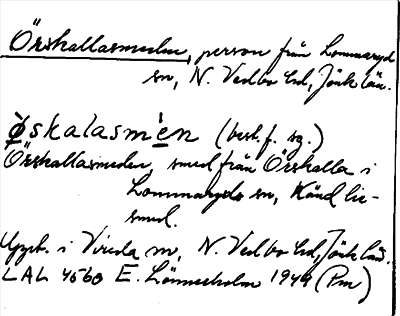 Örskallasmeden, person från Lommaryds
sn, N. Vedbo hd, Jönk län.
Øskalasmèn (best. f. sg.)
Örskallasmeden, smed från Örskalla i
Lommaryds sn, Känd lie-
smed.
Uppt. i Vireda sn, N. Vedbo hd, Jönk län.
LAL 4560 E. Lönneholm 1949 (Pm)